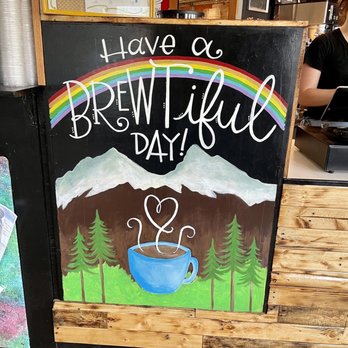 Have a
BREWTiful
DAY!